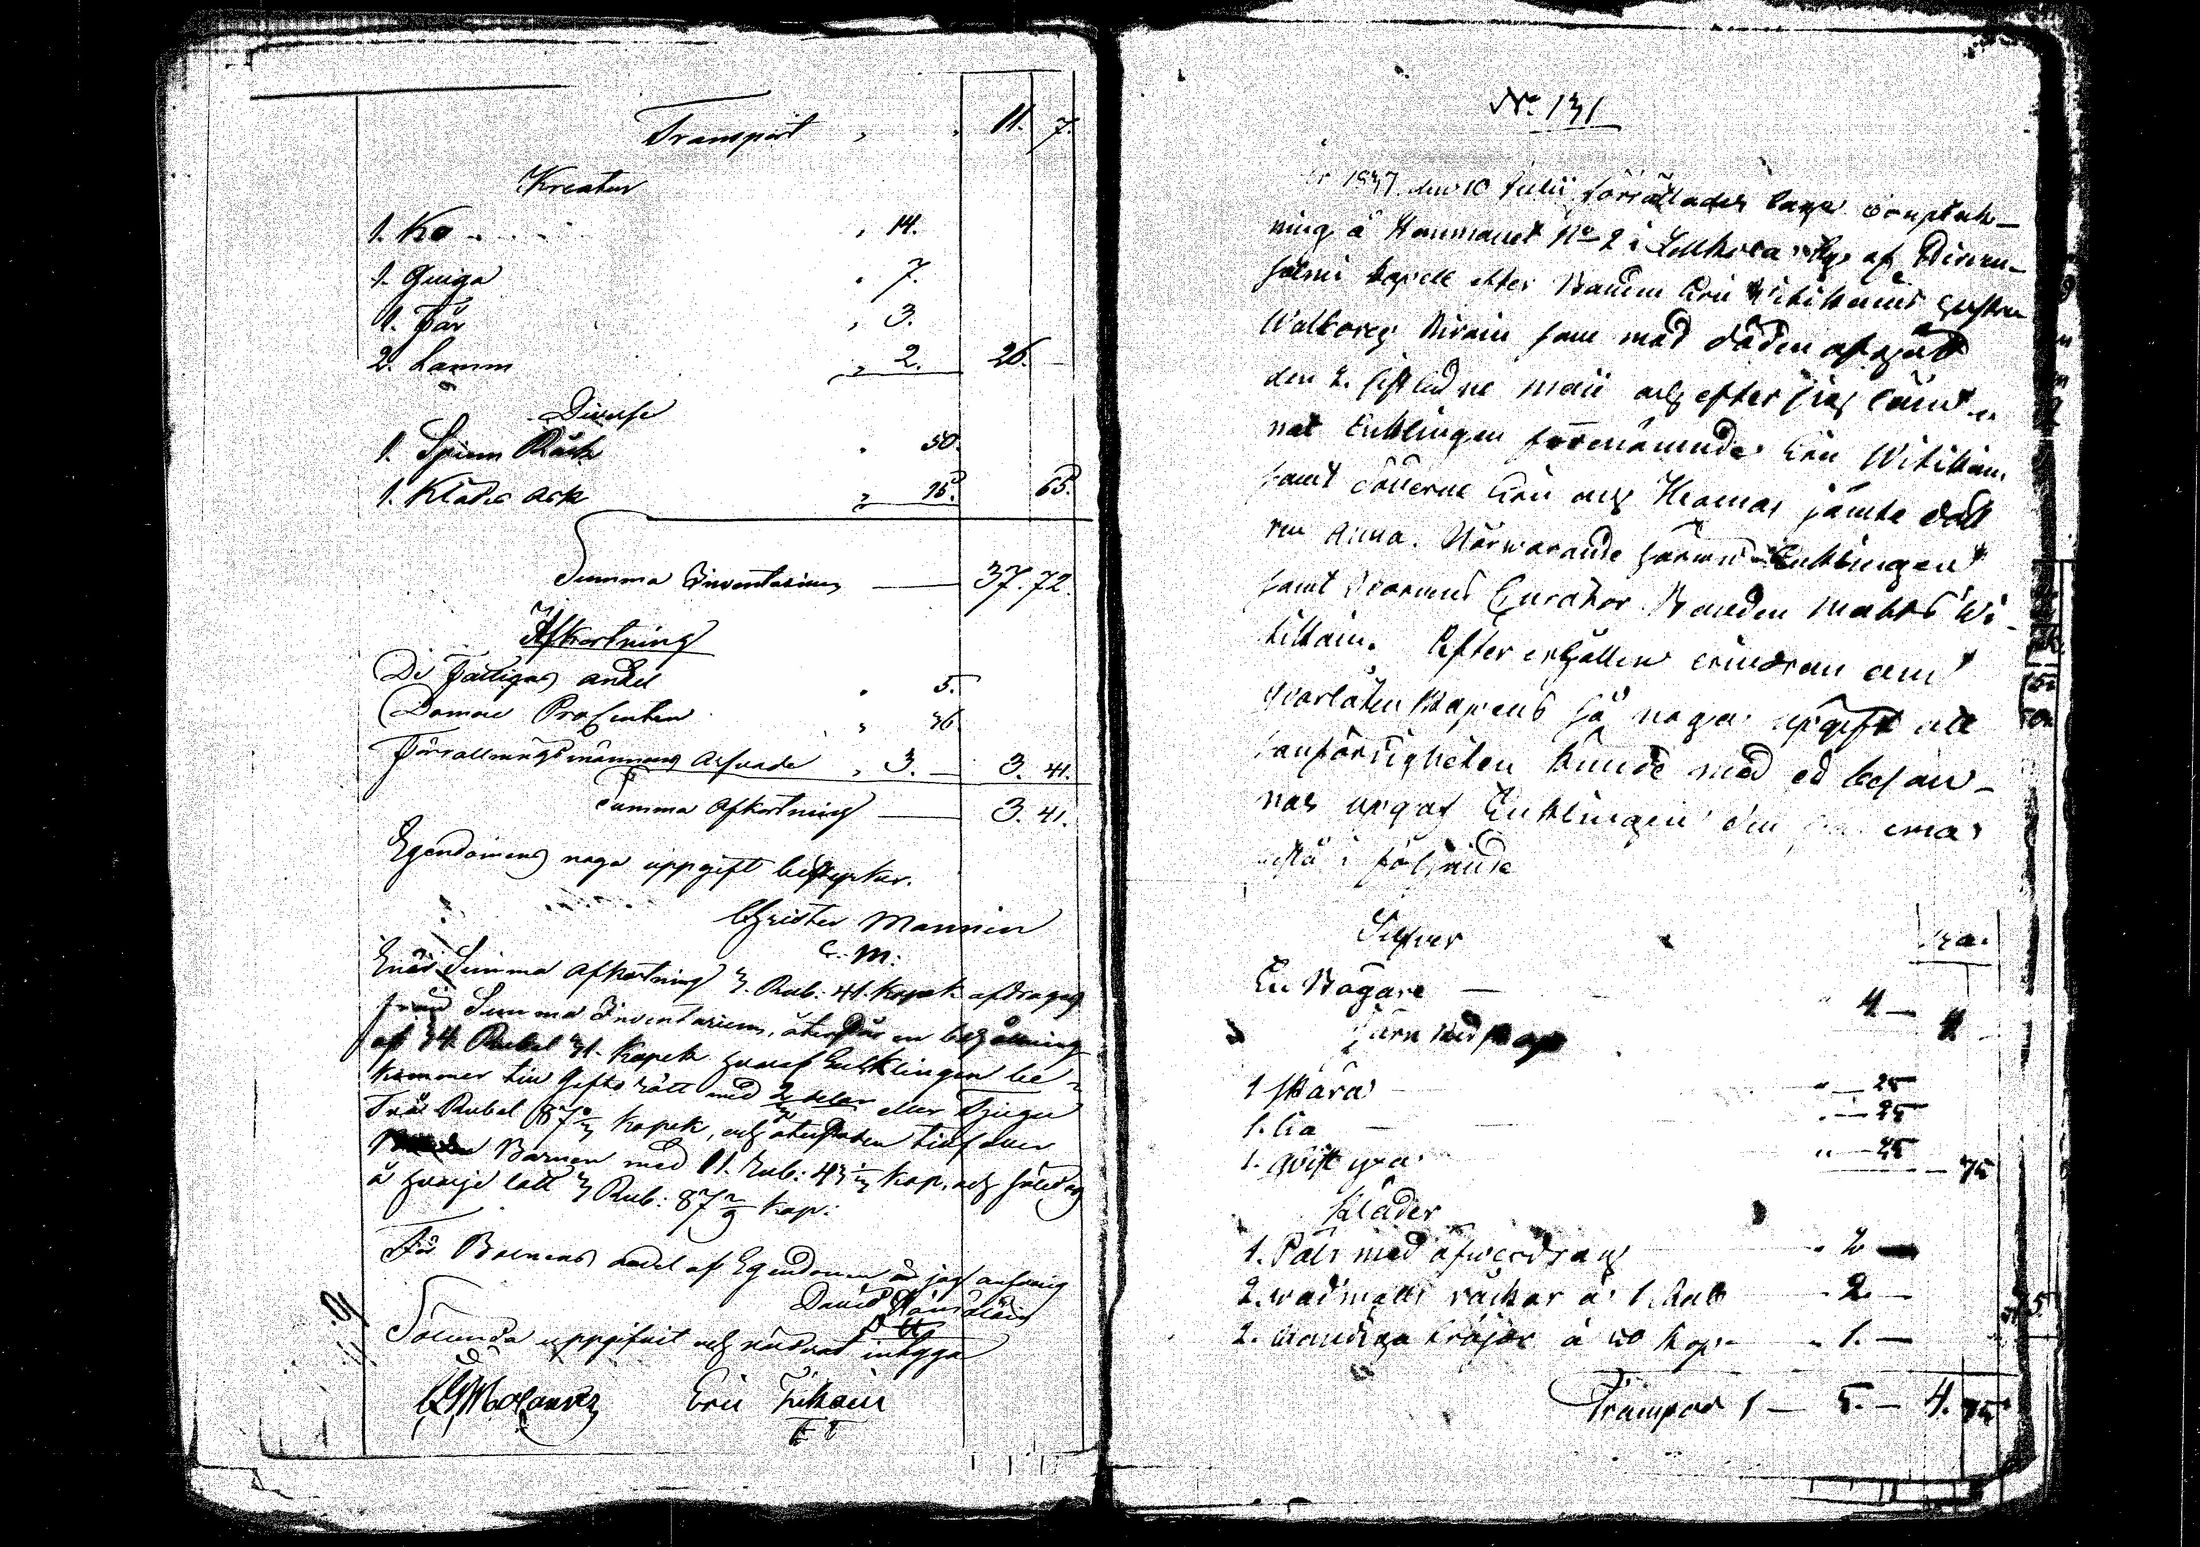 Transport " " 11. 7.
Kreatur
1. Ko " 14.
1. Quiga " 7.
1. Får " 3.
2. Lamm " 2. 26. —
Diverse
1. Spinn Råck " 50.
1. Klädes Ask " 15. 65.
Summa Inventarium — 37. 72.
Afkortning
De Fattigas andel " 5.
Domare Procenten " 36.
Förrättningsmännens Arfvode " 3. — 3. 41.
Summa Afkortning — 3. 41.
Egendomens noga uppgift bestyrker.
Christer Manninen
C. M.
Enär Summa Afkortning 3. Rub: 41. Kopek afdrages
från Summa Inventarium, återstår en behållning
af 34. Rubel 31. Kopek hvaraf Enklingen be-
kommer till Giftorätt med 2/3 delar eller Tjugu
Två Rubel 87 1/3 Kopek, och återstoden tillfaller
Barnen med 11. Rub: 43 2/3 Kop. och således
å hvarje lott 3 Rub: 87 2/9 Kop:
För Barnens andel af Egendomen är jag ansvarig
David
Sålunda uppgifvit och värderat intyga
Eric
No 131
År 1837 den 10 Julii förrättades laga bouptek-
ning å Hemmanet No 2 i by af
kapell efter Bonden Eric Witikains hustru
Walborg som med döden afgått
den 2. sistledne Maii och efter sig läm-
nat Enklingen förenämnde Eric Witikain
samt sönerne Eric och Thomas jämte dott
ren Anna. Närwarande härwid Enklingen
samt Barnens Curator Bonden Matts Wi-
tikain. Efter erhållen erindran om
qvarlåtenskapens så noga uppgift att
sanfärdigheten kunde med ed besan-
nas uppgaf Enklingen den samma
bestå i följande
Silfver
En Bägare — " 4 — 4 —
Järn Redskap
1 skära — " — 25
1. lia — " — 25
1. qvist yxa " — 25 — 75
Kläder
1. Päls med öfwerdrag " 2 —
2. wadmals råckar à 1. Rub " 2. —
2. tröjor à 50 Kop: " 1. —
Transport 1 — 5. — 4. 75